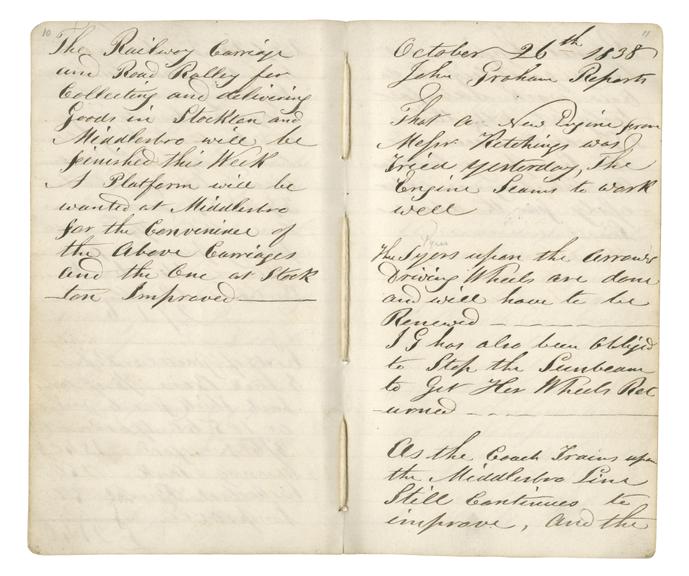 10
The Railway Carriage
and Road Rolley for
Collecting and delivering
Goods in Stockton and
Middlesbro will be
finished this Week
A Platform will be
wanted at Middlesbro
for the Convenience of
the Above Carriages
and the One at Stock
ton Improved
11
October 26th 1838
John Graham Reports
That a New Engine from
Messrs Kitchings was
tried yesterday, The
Engine Seams to work
well
Tyres
The Tyers upon the Arrows
Driving Wheels are done
and will have to be
Renewed
J G has also been Obliged
to Stop the Sunbeam
to Get Her Wheels Ret
urned
As the Coach Trains upon
the Middlesbro Line
Still Continues to
improve, and the